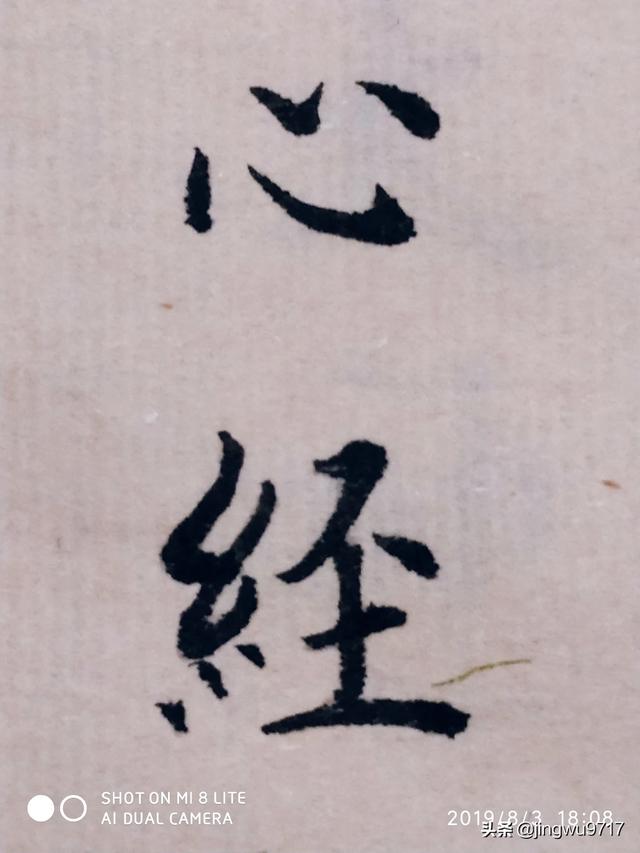 心
經
SHOT ON MI 8 LITE
AI DUAL CAMERA
2019/8/3 18:08
头条 @jingwu9717